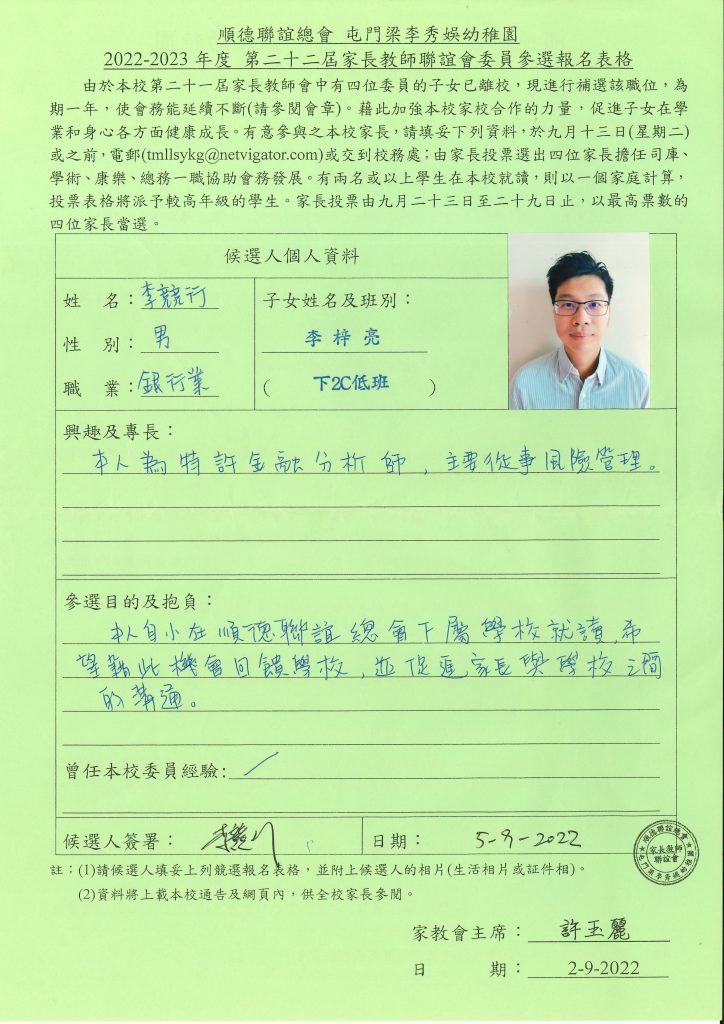 順德聯誼總會 屯門梁李秀娛幼稚園
2022-2023 年度 第二十二屆家長教師聯誼會委員參選報名表格
由於本校第二十一屆家長教師會中有四位委員的子女已離校，現進行補選該職位，為
期一年，使會務能延續不斷(請參閱會章)。藉此加強本校家校合作的力量，促進子女在學
業和身心各方面健康成長。有意參與之本校家長，請填妥下列資料，於九月十三日(星期二)
或之前，電郵(tmllsykg@netvigator.com)或交到校務處；由家長投票選出四位家長擔任司庫、
學術、康樂、總務一職協助會務發展。有兩名或以上學生在本校就讀，則以一個家庭計算，
投票表格將派予較高年級的學生。家長投票由九月二十三日至二十九日止，以最高票數的
四位家長當選。
候選人個人資料
姓 名：李競行 子女姓名及班別：
性 別：男 李梓亮
職 業：銀行業 ( 下2C低班 )
興趣及專長：
本人為特許金融分析師，主要從事風險管理。
參選目的及抱負：
本人自小在順德聯誼總會下屬學校就讀，希
望藉此機會回饋學校，並促進家長與學校之間
的溝通。
曾任本校委員經驗：/
候選人簽署： 日期： 5-9-2022
註：(1)請候選人填妥上列競選報名表格，並附上候選人的相片(生活相片或証件相)。
(2)資料將上載本校通告及網頁內，供全校家長參閱。
順德聯誼總會
家長教師
聯誼會
屯門梁李秀娛幼稚園
家教會主席：許玉麗
日 期：2-9-2022